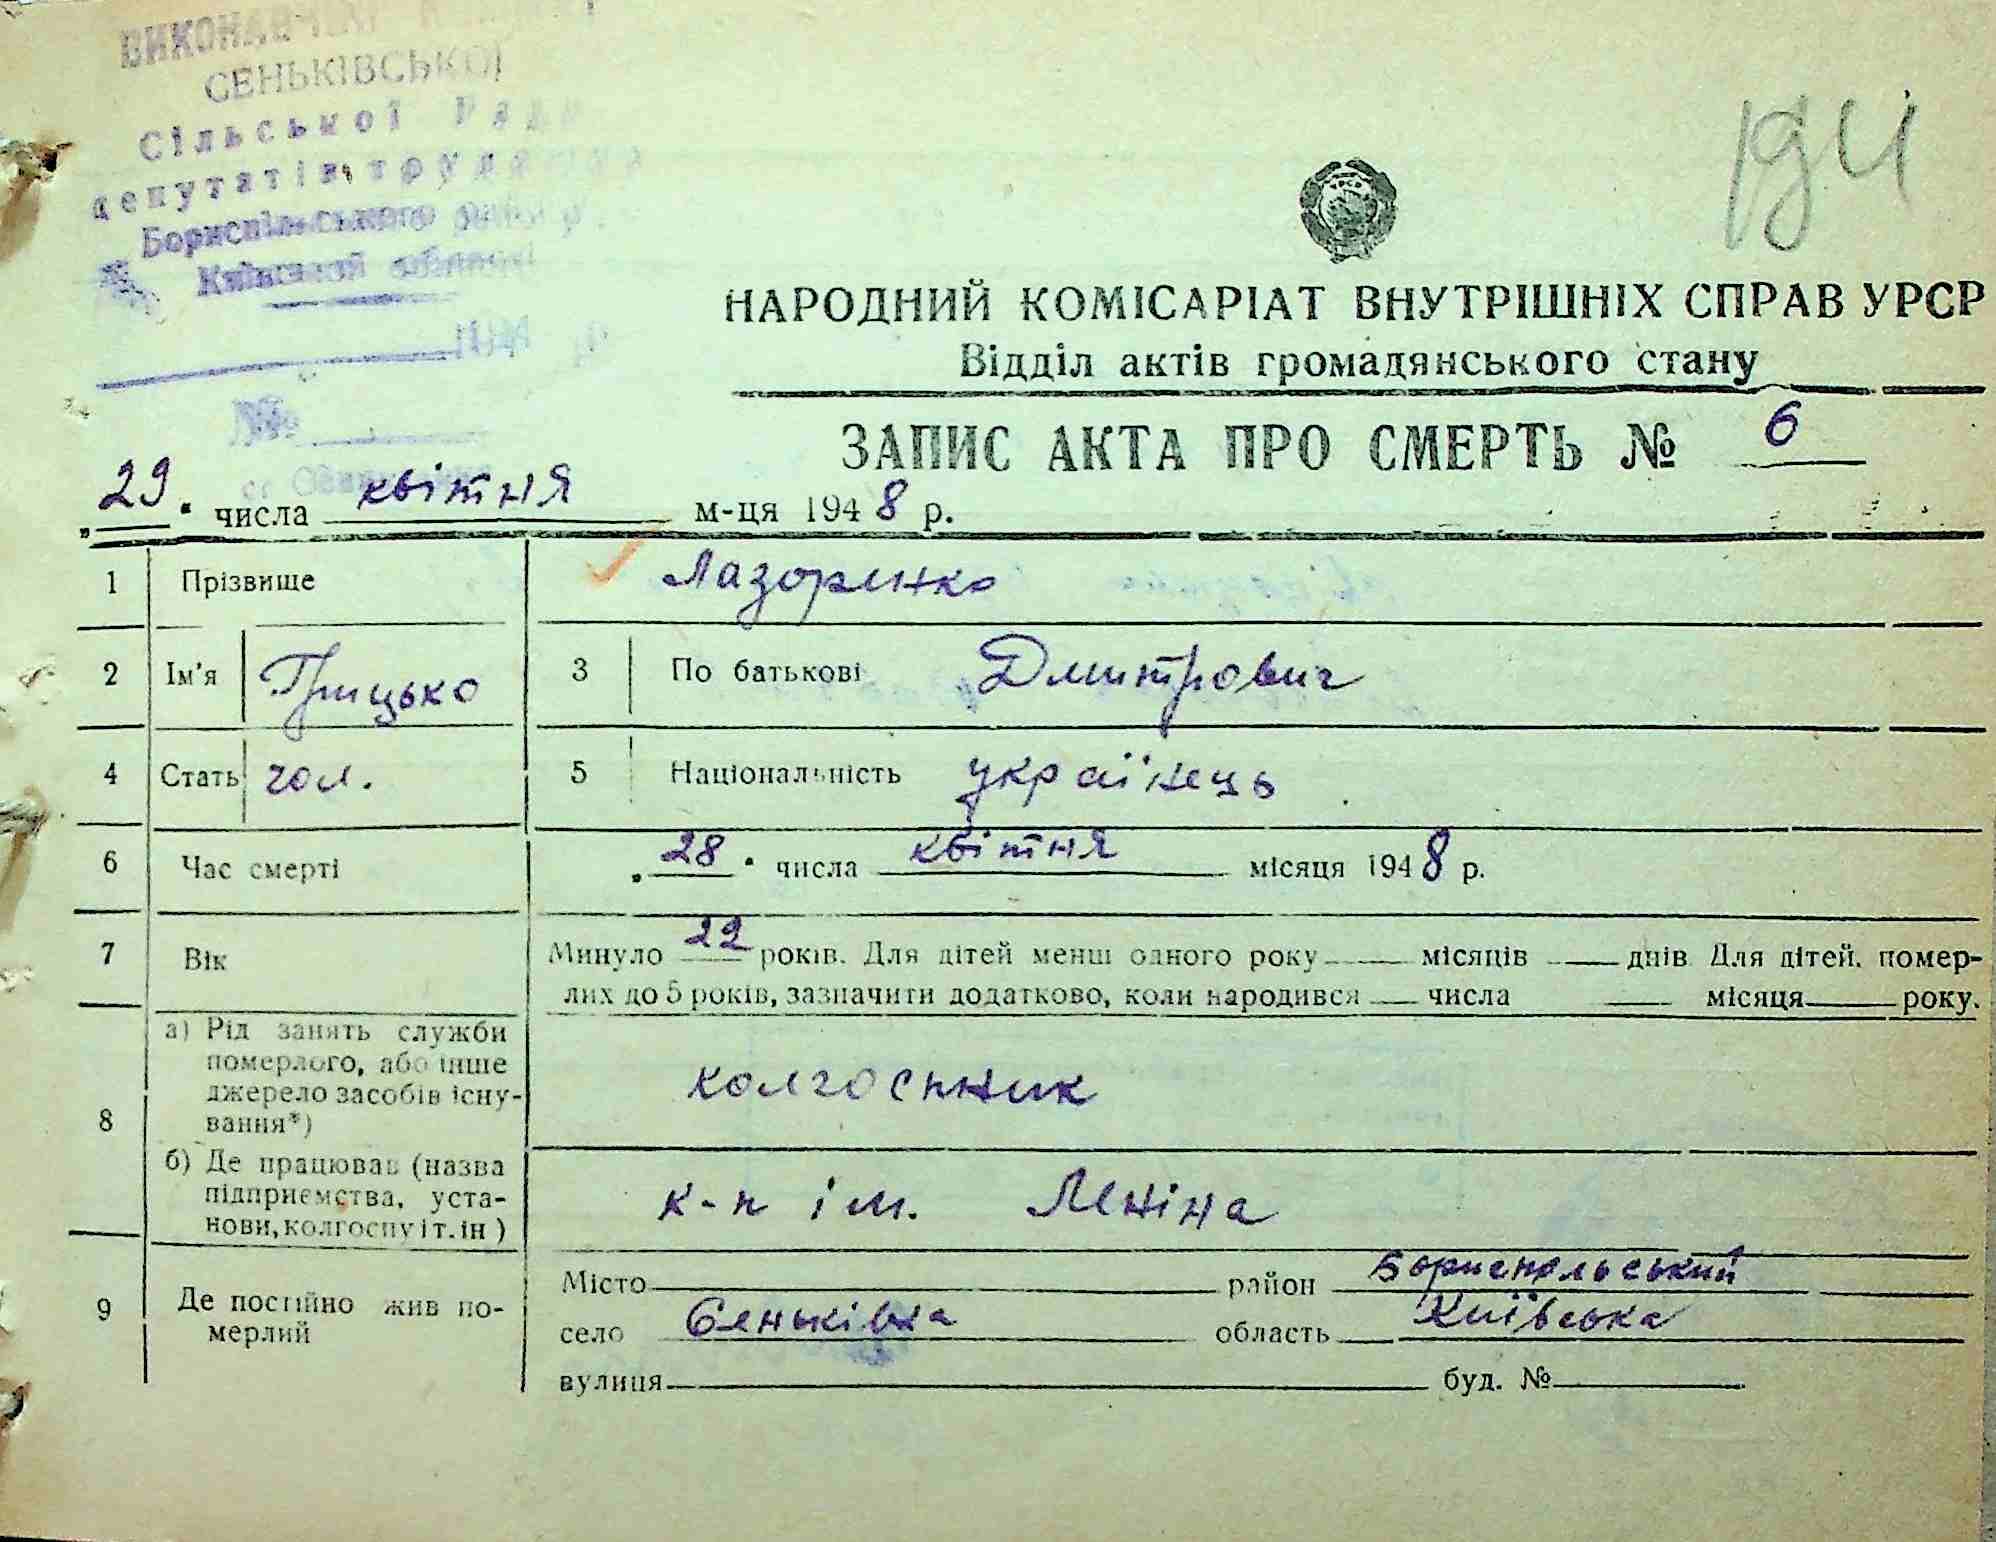 ВИКОНАВЧИЙ
СЕНЬКІВСЬКОЇ
Сільської Ради
депутатів трудящих
Бориспільського району
Київської області
194 р.
№
с. Сеньківка
194
НАРОДНИЙ КОМІСАРІАТ ВНУТРІШНІХ СПРАВ УРСР
Відділ актів громадянського стану
ЗАПИС АКТА ПРО СМЕРТЬ № 6
„29" числа квітня м-ця 1948 р.
1 Прізвище Лазоренко
2 Ім'я Грицько 3 По батькові Дмитрович
4 Стать чол. 5 Національність українець
6 Час смерті „28" числа квітня місяця 1948 р.
7 Вік Минуло 22 років. Для дітей менш одного року місяців днів. Для дітей, помер-
лих до 5 років, зазначити додатково, коли народився числа місяця року.
8 а) Рід занять служби
померлого, або інше
джерело засобів існу-
вання*)
колгоспник
б) Де працював (назва
підприємства, уста-
нови, колгоспу і т. ін)
к-п ім. Леніна
9 Де постійно жив по-
мерлий
Місто район Бориспольський
село Сеньківка область Київська
вулиця буд. №